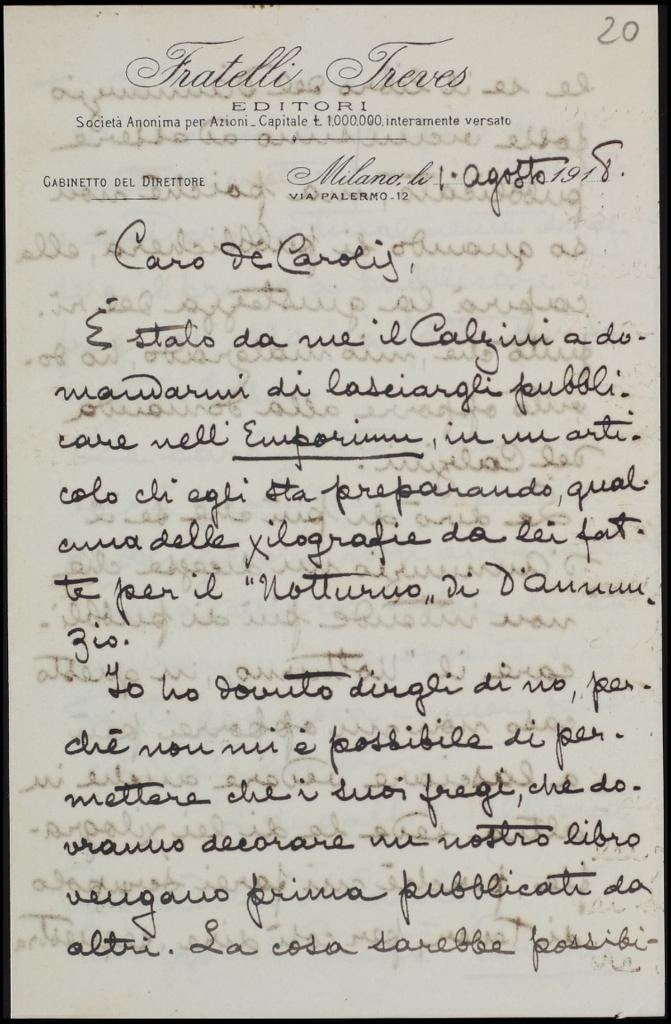 20
Fratelli Treves
EDITORI
Società Anonima per Azioni_Capitale £ 1,000,000, interamente versato
GABINETTO DEL DIRETTORE
Milano, li 1. agosto 1918.
VIA PALERMO-12
Caro De Carolis,
È stato da me il Calzini a do-
mandarmi di lasciargli pubbli-
care nell' Emporium, in un arti-
colo ch'egli sta preparando, qual-
cuna delle xilografie da lei fat-
te per il "Notturno" di D'Annun-
zio.
Io ho dovuto dirgli di no, per-
chè non mi è possibile di per-
mettere che i suoi fregi, che do-
vranno decorare un nostro libro
vengano prima pubblicati da
altri. La cosa sarebbe possibi-